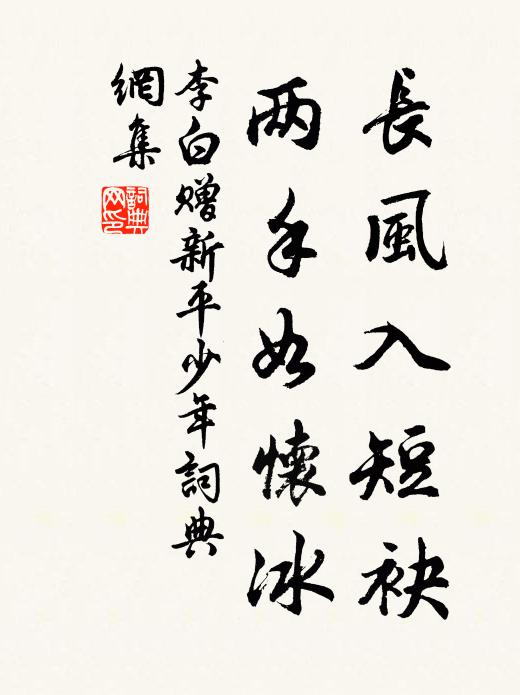 長風入短袂
两手如懷冰
李白贈新平少年詞典
網集
詞典
网印